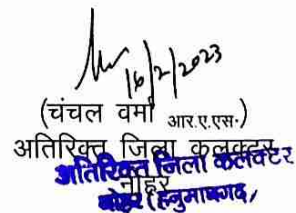 16/2/2023
(चंचल वर्मा आर.ए.एस.)
अतिरिक्त जिला कलक्टर
अतिरिक्त जिला कलक्टर
नोहर
नोहर (हनुमानगढ़)